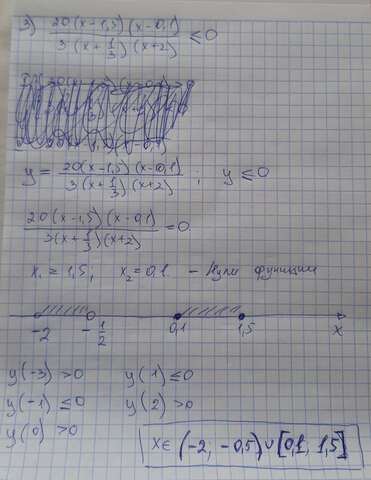 3) 20(x-1,5)(x-0,1) / 3(x+1/3)(x+2) ≤ 0
y = 20(x-1,5)(x-0,1) / 3(x+1/3)(x+2) ; y ≤ 0
20(x-1,5)(x-0,1) / 3(x+1/3)(x+2) = 0
x₁ = 1,5, x₂ = 0,1 - Нули функции
-2 -1/2 0,1 1,5 x
y(-3) > 0 y(1) ≤ 0
y(-1) ≤ 0 y(2) > 0
y(0) > 0
x ∈ (-2; -0,5) ∪ [0,1, 1,5]